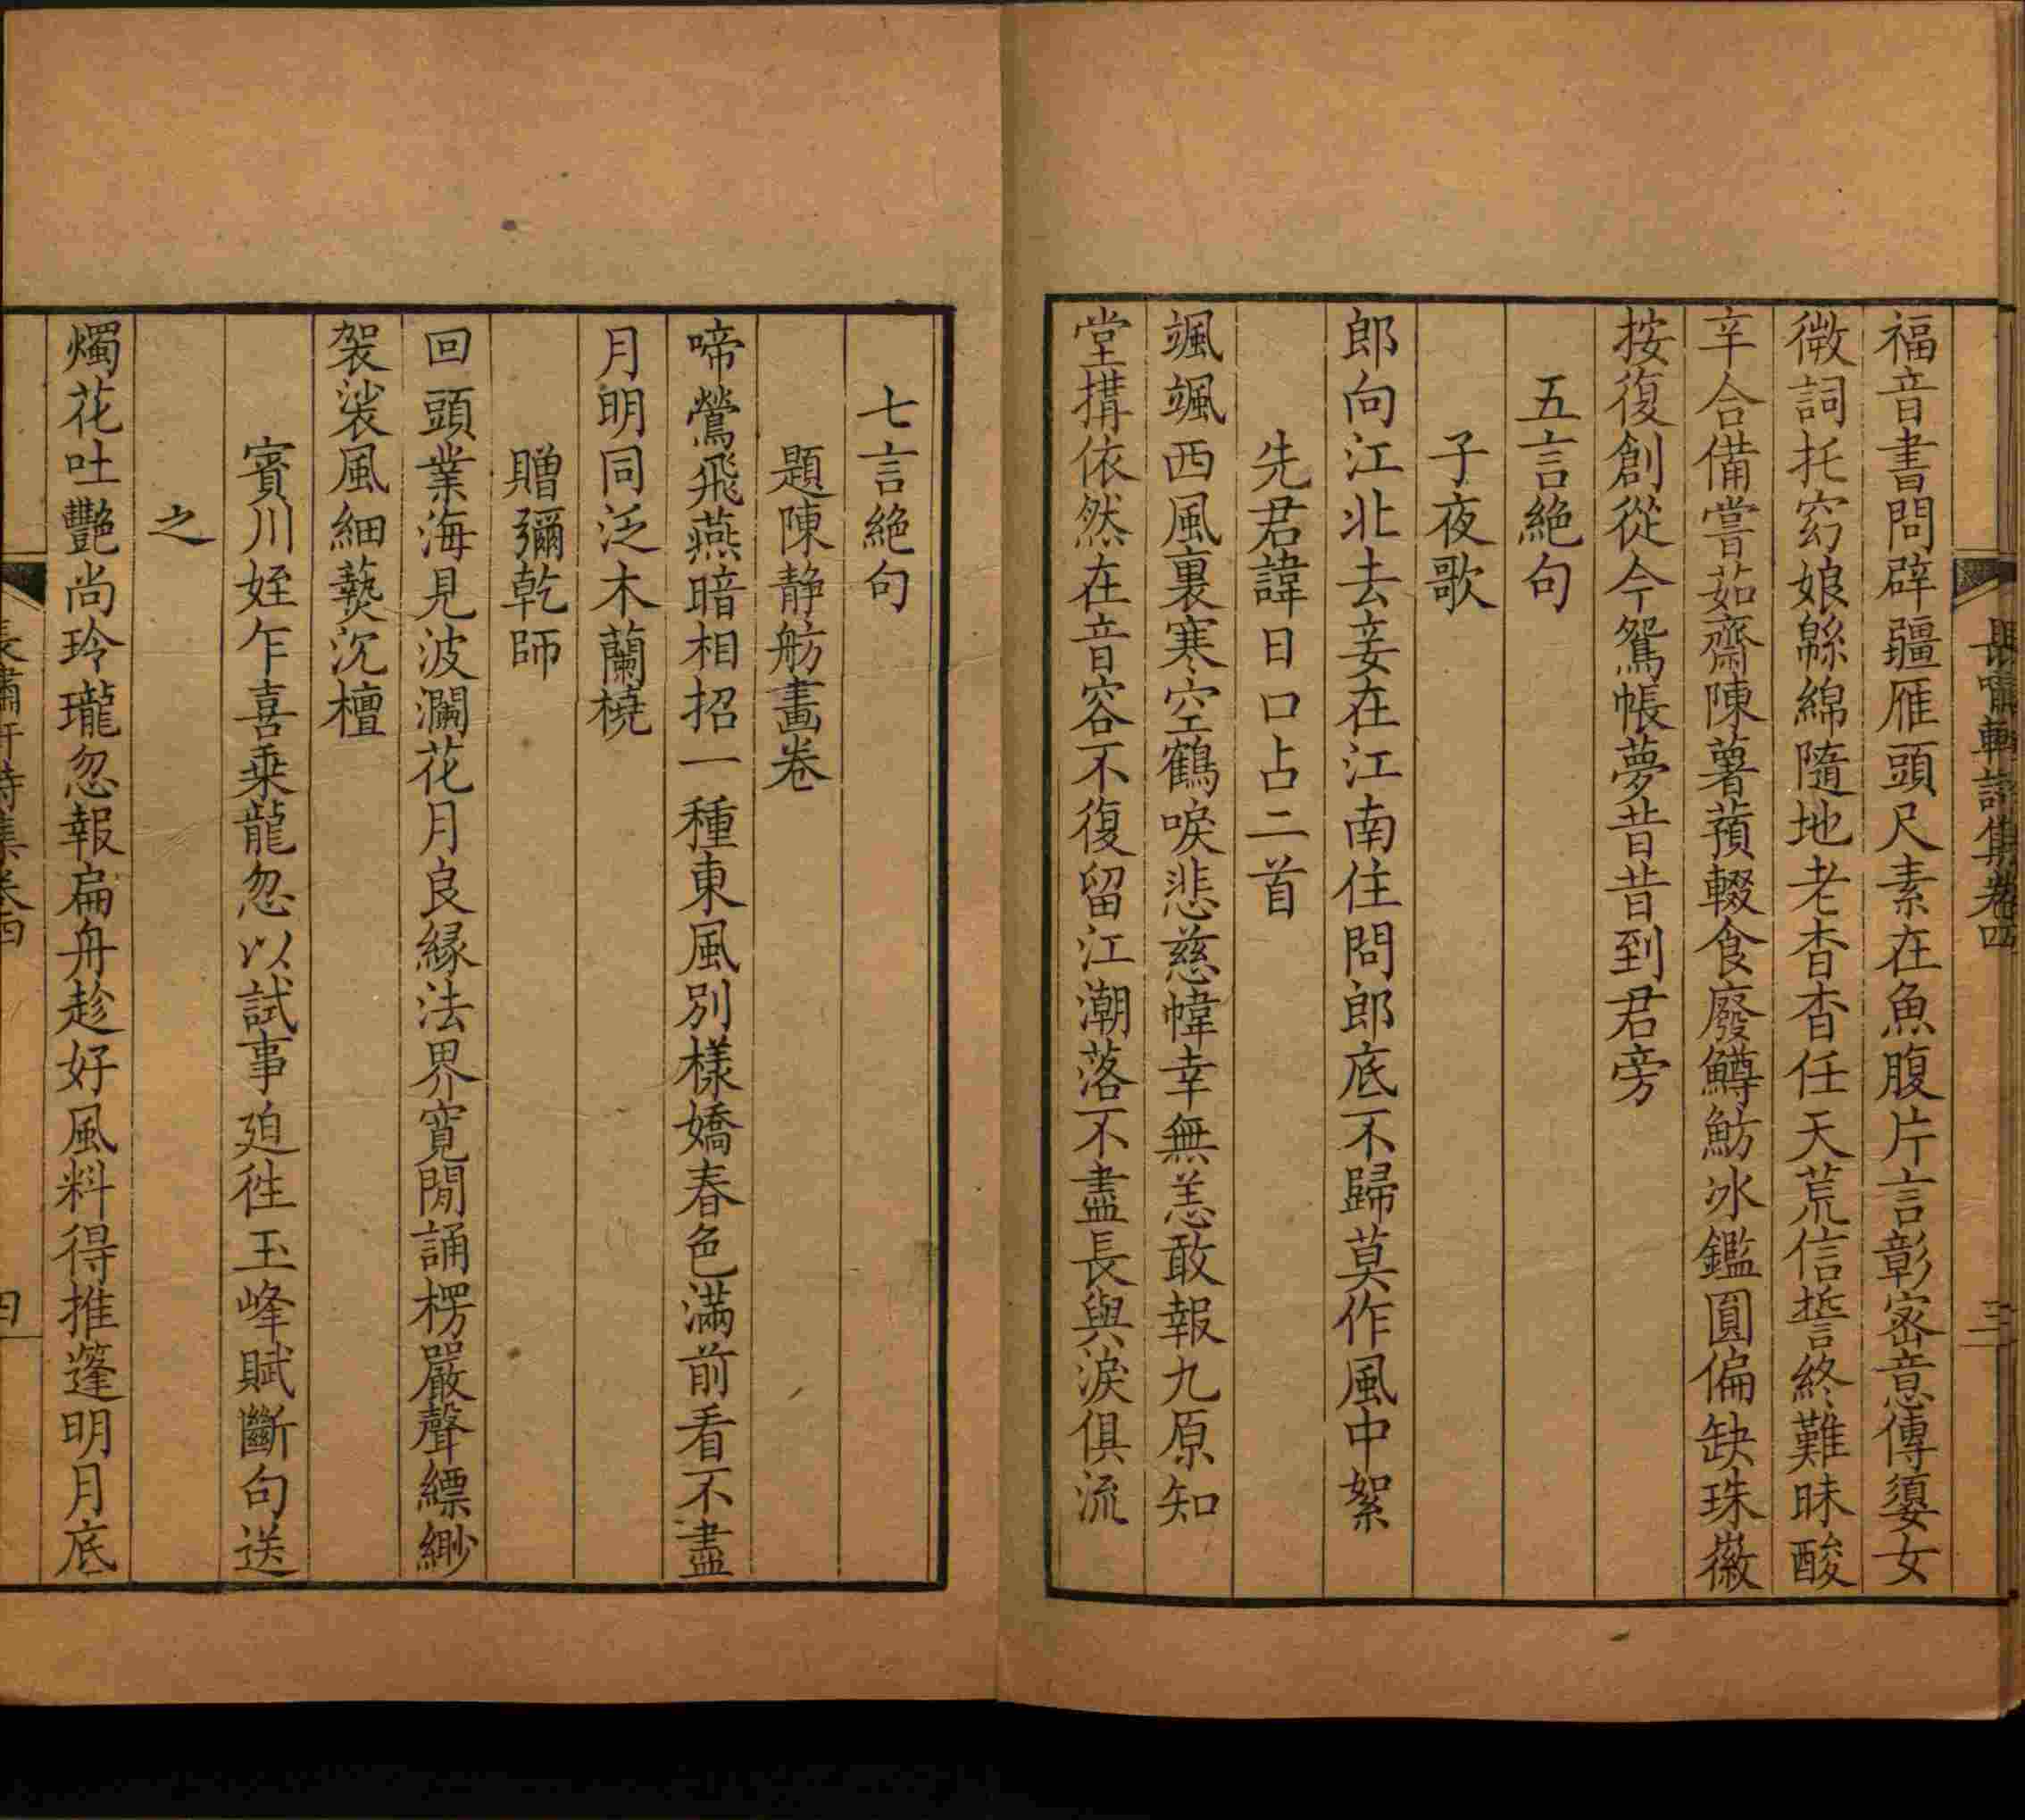 長嘯軒詩集卷四
三
福音書問辟疆雁頭尺素在魚腹片言彰密意傳婁女
微詞托窈娘緜綿隨地老杳杳任天荒信誓終難昧酸
辛合備嘗茹齋陳薯蕷輟食廢鱒魴冰鑑圓偏缺珠徽
按復創從今鴛帳夢昔昔到君旁
五言絶句
子夜歌
郎向江北去妾在江南住問郎底不歸莫作風中絮
先君諱日口占二首
颯颯西風裏寒空鶴唳悲慈幃幸無恙敢報九原知
堂搆依然在音容不復留江潮落不盡長與淚俱流
七言絶句
題陳静舫畫卷
啼鶯飛燕暗相招一種東風別樣嬌春色滿前看不盡
月明同泛木蘭橈
贈彌乾師
回頭業海見波瀾花月良緣法界寬閒誦楞嚴聲縹緲
袈裟風細爇沉檀
賓川姪乍喜乗龍忽以試事廹徃玉峰賦斷句送
之
燭花吐艷尚玲瓏忽報扁舟趁好風料得推篷明月底
長嘯軒詩集卷四
四